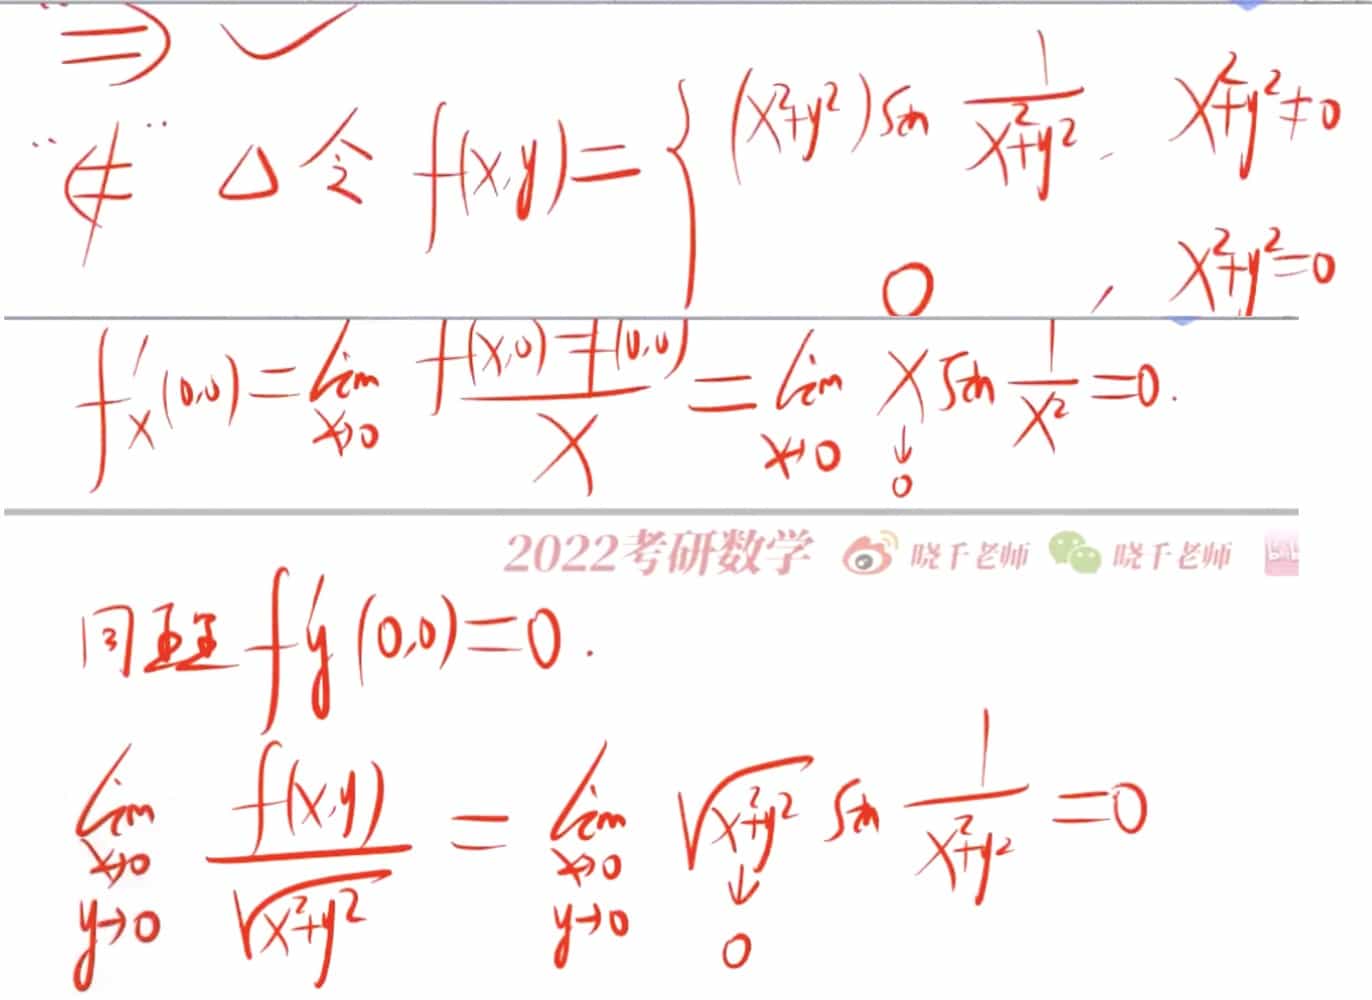 "⇒" ✓
"⇍" △ 令 f(x,y)= { (x²+y²) sin 1/(x²+y²), x²+y²≠0
0, x²+y²=0
f'x(0,0)= lim x→0 (f(x,0)-f(0,0))/x = lim x→0 x sin 1/x² =0.
↓
0
2022考研数学 晓千老师 晓千老师
同理 f'y(0,0)=0.
lim x→0 y→0 f(x,y)/√(x²+y²) = lim x→0 y→0 √(x²+y²) sin 1/(x²+y²) =0
↓
0